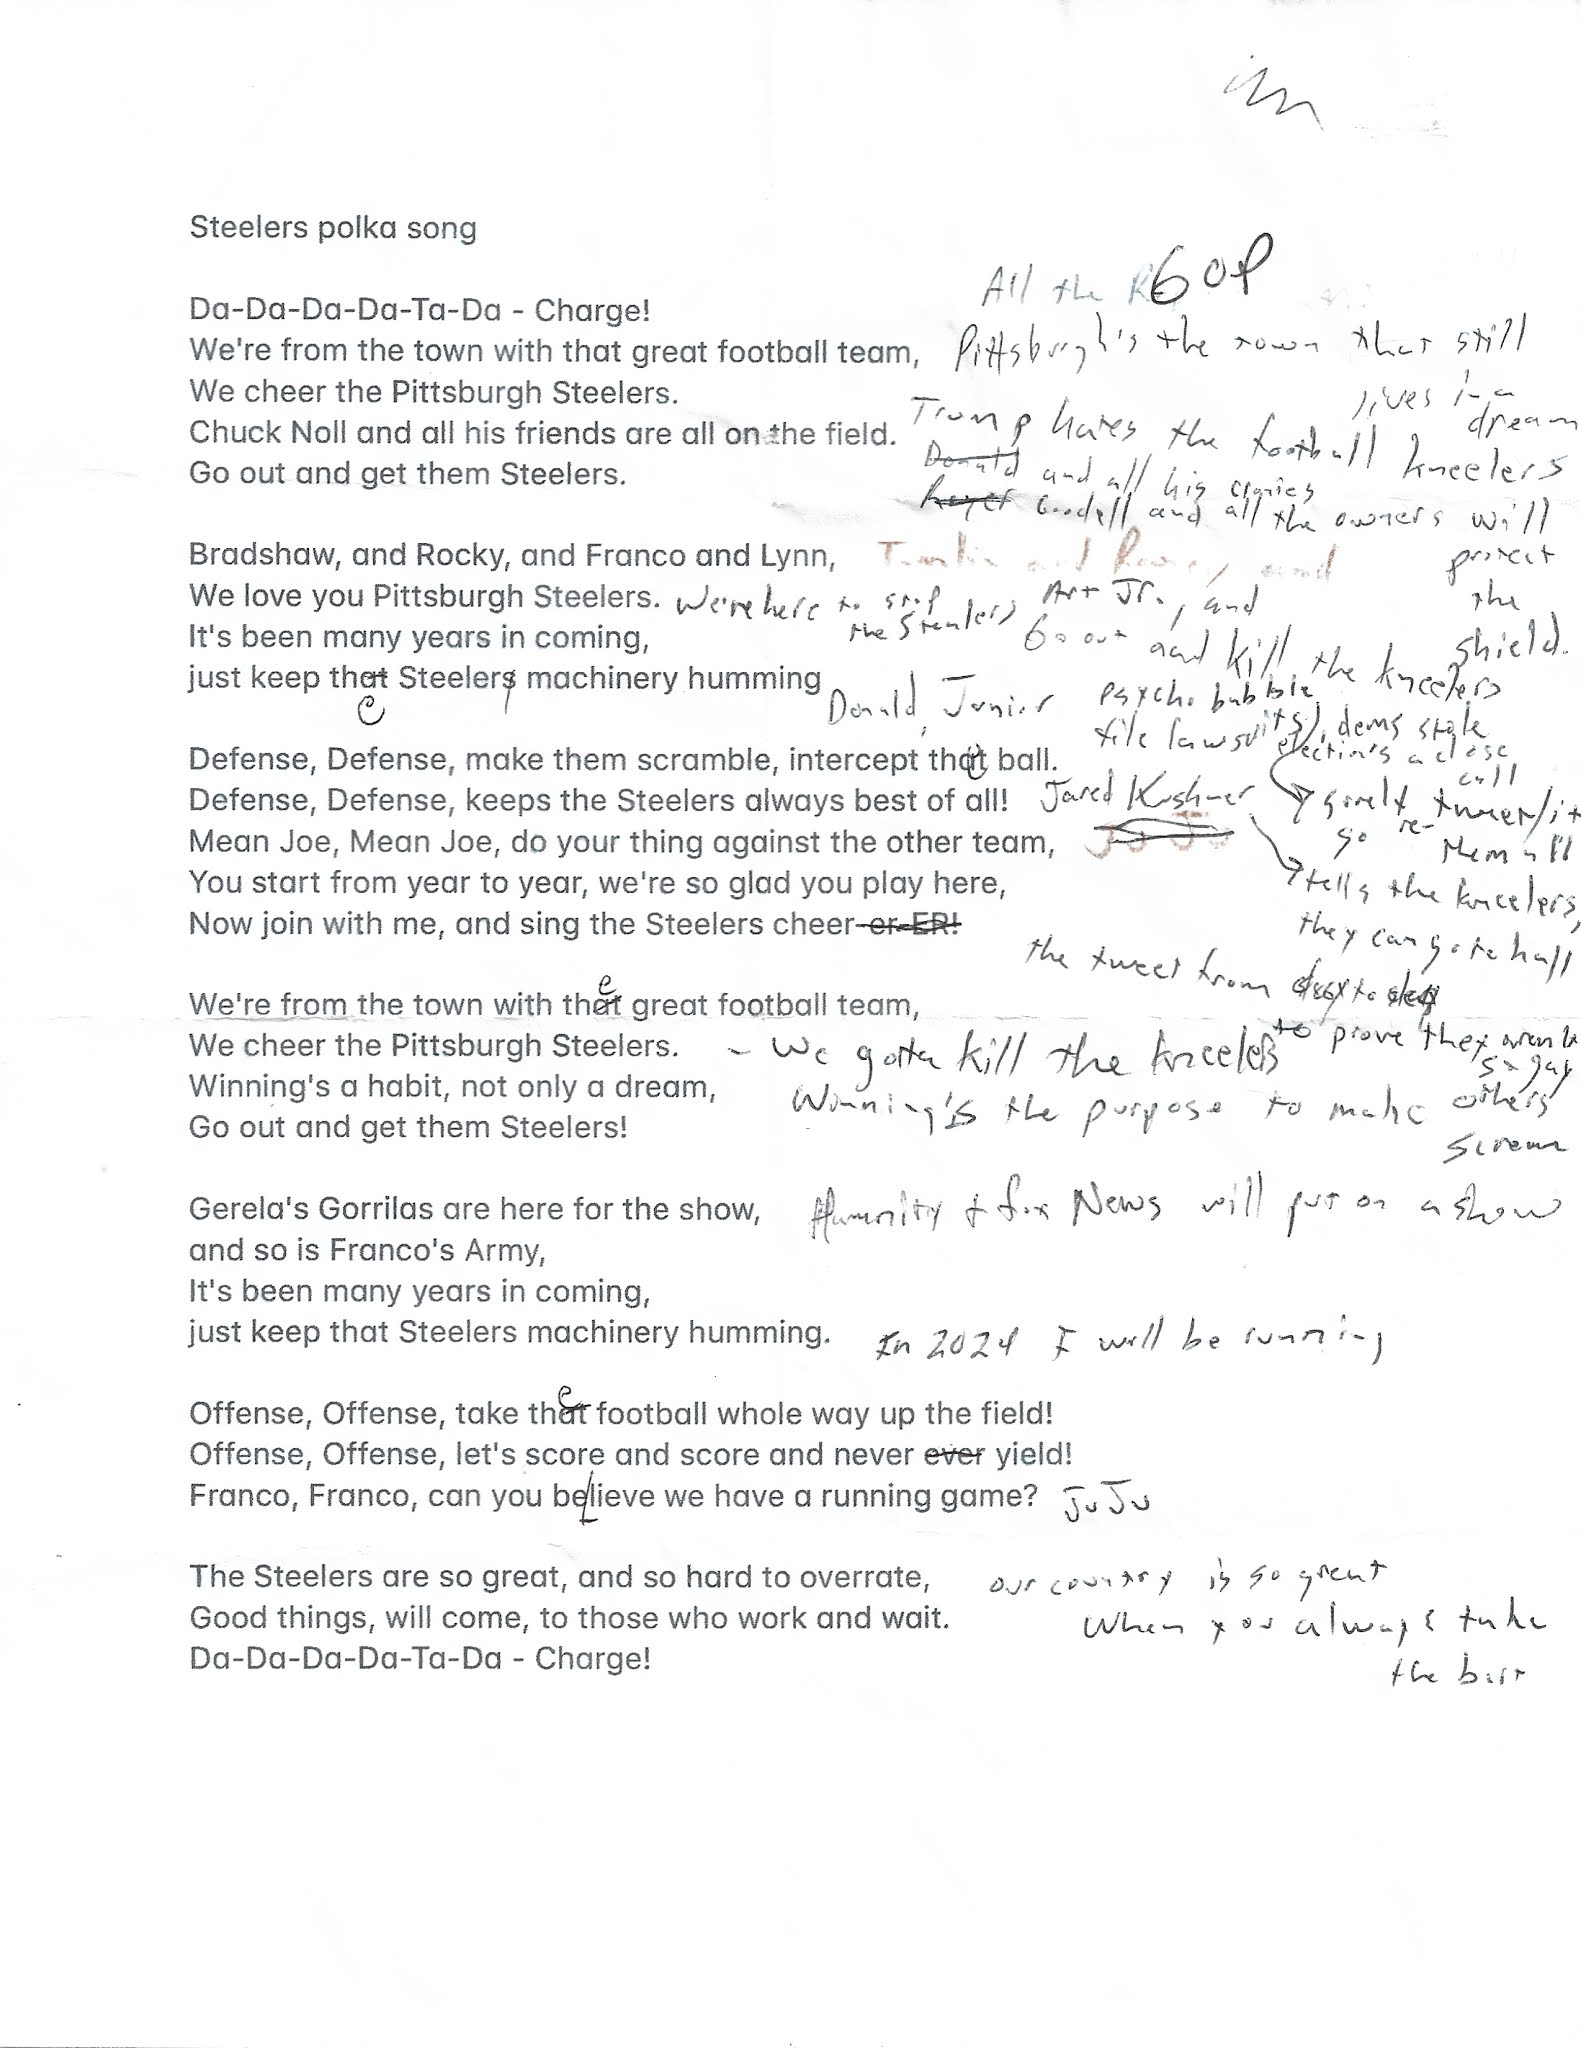 Steelers polka song
All the GOP
Da-Da-Da-Da-Ta-Da - Charge!
We're from the town with that great football team, Pittsburgh's the town that still
lives in a
dream
We cheer the Pittsburgh Steelers.
Trump hates the football kneelers
Chuck Noll and all his friends are all on the field.
Donald and all his cronies
Go out and get them Steelers.
Roger Goodell and all the owners will
protect
the
shield.
Bradshaw, and Rocky, and Franco and Lynn, Tomlin and Rooney and
We love you Pittsburgh Steelers. We're here to stop
the Steelers
Art Jr., and
It's been many years in coming,
Go out and kill the kneelers
just keep that Steelers machinery humming
e
Donald Junior psycho babble
file lawsuits, dems stole
election's a close
call
Defense, Defense, make them scramble, intercept that ball.
Defense, Defense, keeps the Steelers always best of all! Jared Kushner
tweet it
so re-
them all
Mean Joe, Mean Joe, do your thing against the other team, JuJu
tells the kneelers,
they can go to hall
You start from year to year, we're so glad you play here,
Now join with me, and sing the Steelers cheer-er-ER!
the tweet from
to prove they
so gay
e
We're from the town with that great football team,
We cheer the Pittsburgh Steelers. - We gotta kill the kneelers
Winning's a habit, not only a dream, Winning's the purpose to make others
scream
Go out and get them Steelers!
Gerela's Gorrilas are here for the show, & Fox News will put on a show
and so is Franco's Army,
It's been many years in coming,
just keep that Steelers machinery humming. In 2024 I will be running
e
Offense, Offense, take that football whole way up the field!
Offense, Offense, let's score and score and never ever yield!
Franco, Franco, can you believe we have a running game? JuJu
The Steelers are so great, and so hard to overrate, our country is so great
Good things, will come, to those who work and wait. When you always take
the bait
Da-Da-Da-Da-Ta-Da - Charge!